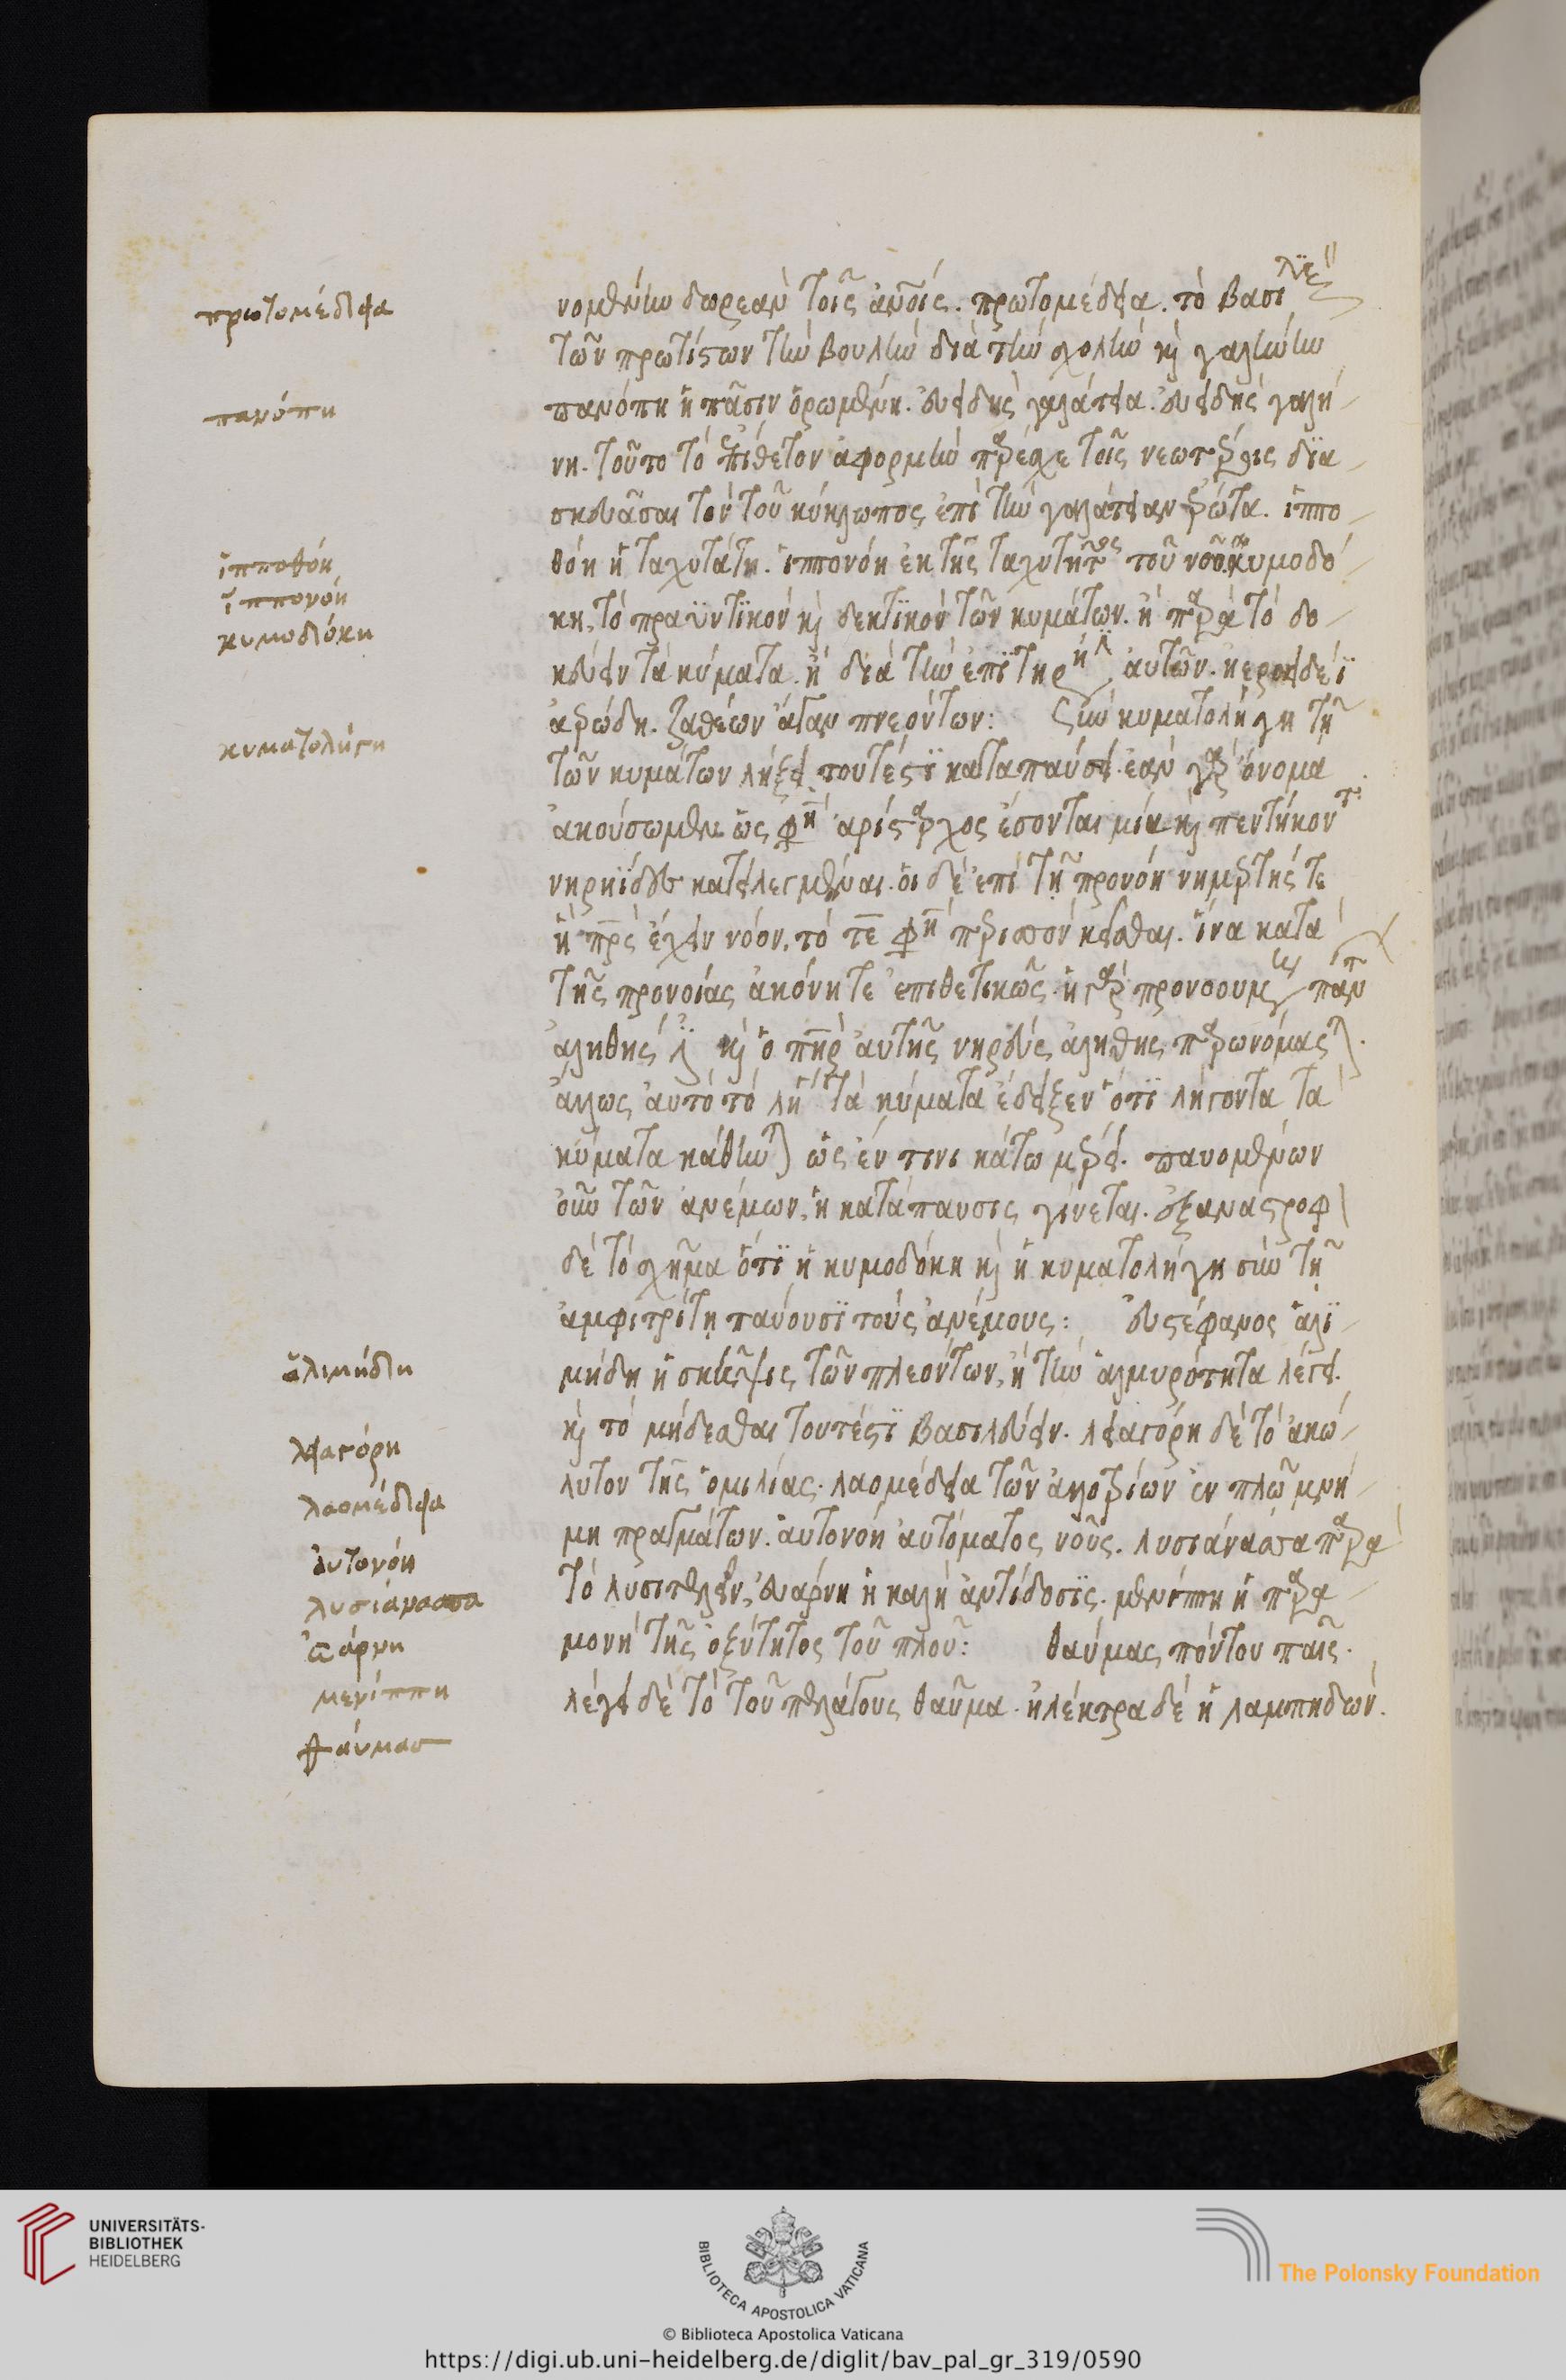 πρωτομέδεια
πανόπη
ἱπποθόη
ἱππονόη
κυμοδόκη
κυματολήγη
ἁλιμήδη
λειαγόρη
λαομέδεια
αὐτονόη
λυσιάνασσα
εὐάρνη
μενίππη
θαύμας
νομένην δωρεὰν τοῖς ἀνοις. πρωτομέδεια. τὸ βασι
τῶν πρωτίστων τὴν βουλὴν διὰ τὴν σχολὴν καὶ γαλήνην
πανόπη ἡ πᾶσιν ὁρωμένη. εὐειδὴς γαλάτεια. εὐειδὴς γαλή
νη. τοῦτο τὸ ἐπίθετον ἀφορμὴν παρέσχε τοῖς νεωτέροις δια
σκευᾶσαι τὸν τοῦ κύκλωπος ἐπὶ τὴν γαλάτειαν ἔρωτα. ἱππο
θόη ἡ ταχυτάτη. ἱππονόη ἐκ τῆς ταχυτῆτος τοῦ νοῦ. κυμοδό
κη, τὸ πραϋντικὸν καὶ δεκτικὸν τῶν κυμάτων. ἢ παρὰ τὸ δο
κεύειν τὰ κύματα. ἢ διὰ τὴν ἐπιτηρ αὐτῶν. ἠεροειδέϊ
ἀερώδη. ζαθέων ἄγαν πνεόντων: σὺν κυματολήγη τῇ
τῶν κυμάτων λήξει τουτέστι καταπαύσει. ἐὰν γὰρ ὄνομα
ἀκούσωμεν ὥς φη ἀρίσταρχος ἔσονται μία καὶ πεντήκοντ
νηρηΐδες κατειλεγμέναι. οἱ δὲ ἐπὶ τῇ προνόη νημερτής τε
ἡ πρς ἔχειν νόον. τό τε φη περισσὸν κεῖσθαι. ἵνα κατὰ
τῆς προνοίας ἀκούηται ἐπιθετικῶς. ἡ γὰρ προνοουμ παν
ἀληθής καὶ ὁ πηρ αὐτῆς νηρεὺς ἀληθὴς παρωνόμασται.
ἄλλως αὐτὸ τὸ λη τὰ κύματα ἔδειξεν ὅτι λήγοντα τὰ
κύματα κάθηνται ὡς ἔν τινι κάτω μέρει. παυομένων
οὖν τῶν ἀνέμων, ἡ κατάπαυσις γίνεται. ἐξ ἀναστροφ
δὲ τὸ σχῆμα ὅτι ἡ κυμοδόκη καὶ ἡ κυματολήγη σὺν τῇ
ἀμφιτρίτῃ παύουσι τοὺς ἀνέμους: εὐστέφανος ἁλι
μήδη ἡ σκέψις τῶν πλεόντων, ἢ τὴν ἁλμυρότητα λέγει.
καὶ τὸ μήδεσθαι τουτέστι βασιλεύειν. λειαγόρη δὲ τὸ ἀκώ
λυτον τῆς ὁμιλίας. λαομέδεια τῶν ἀλλοτρίων ἐν πλῷ μνή
μη πραγμάτων. αὐτονόη αὐτόματος νοῦς. λυσιάνασσα παρὰ
τὸ λυσιτελεῖν, εὐάρνη ἡ καλὴ ἀντίδοσις. μενίππη ἡ παρα
μονὴ τῆς ὀξύτητος τοῦ πλοῦ: θαύμας πόντου παῖς.
λέγει δὲ τὸ τοῦ πελάγους θαῦμα. ἠλέκτρα δὲ ἡ λαμπηδών.
UNIVERSITÄTS-
BIBLIOTHEK
HEIDELBERG
BIBLIOTECA APOSTOLICA VATICANA
The Polonsky Foundation
© Biblioteca Apostolica Vaticana
https://digi.ub.uni-heidelberg.de/diglit/bav_pal_gr_319/0590